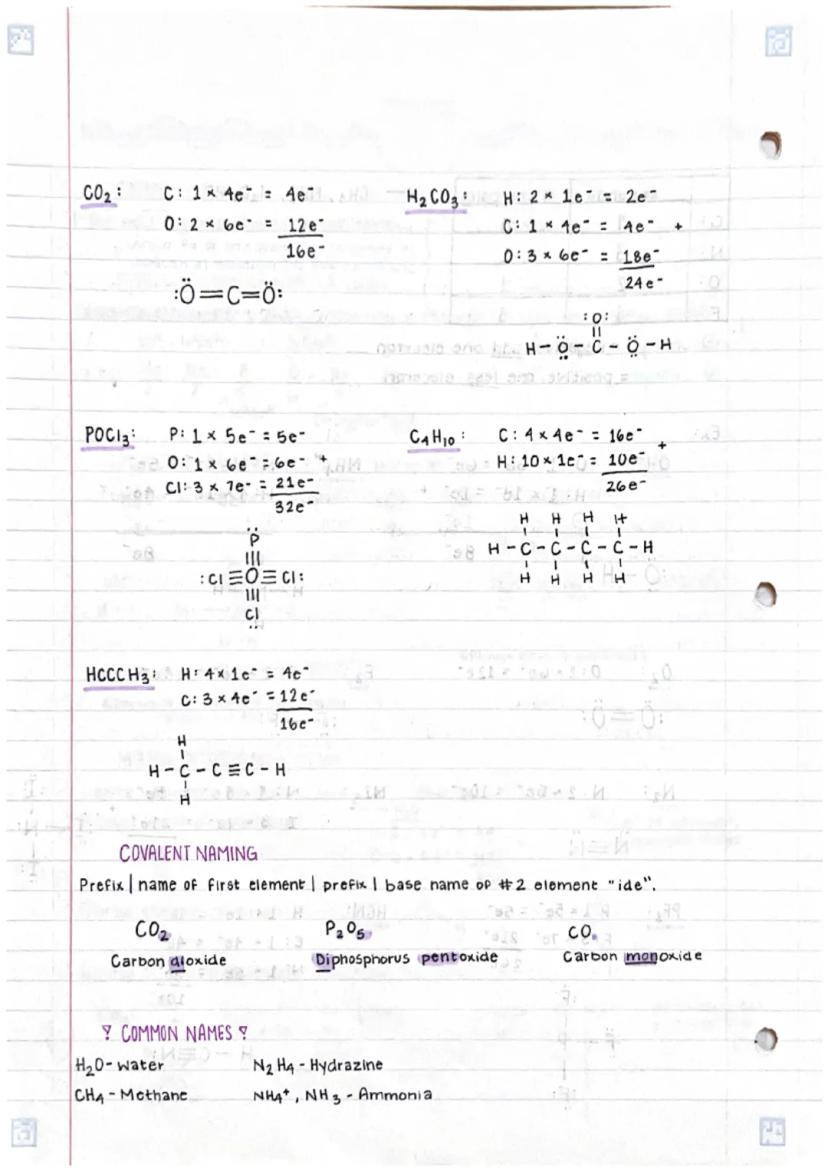 CO₂: C: 1 × 4e⁻ = 4e⁻
O: 2 × 6e⁻ = 12e⁻
16e⁻
:Ö=C=Ö:
H₂CO₃: H: 2 × 1e⁻ = 2e⁻
C: 1 × 4e⁻ = 4e⁻ +
O: 3 × 6e⁻ = 18e⁻
24e⁻
:O:
||
H-Ö-C-Ö-H
POCl₃: P: 1 × 5e⁻ = 5e⁻
O: 1 × 6e⁻ = 6e⁻ +
Cl: 3 × 7e⁻ = 21e⁻
32e⁻
P
:Cl≡O≡Cl:
Cl
C₄H₁₀: C: 4 × 4e⁻ = 16e⁻ +
H: 10 × 1e⁻ = 10e⁻
26e⁻
H H H H
H-C-C-C-C-H
H H H H
HCCCH₃: H: 4 × 1e⁻ = 4e⁻
C: 3 × 4e⁻ = 12e⁻
16e⁻
H
H-C-C≡C-H
H
COVALENT NAMING
Prefix | name of first element | prefix | base name of #2 element "ide".
CO₂ P₂O₅ CO
Carbon dioxide Diphosphorus pentoxide Carbon monoxide
COMMON NAMES
H₂O - water N₂H₄ - Hydrazine
CH₄ - Methane NH₄⁺, NH₃ - Ammonia